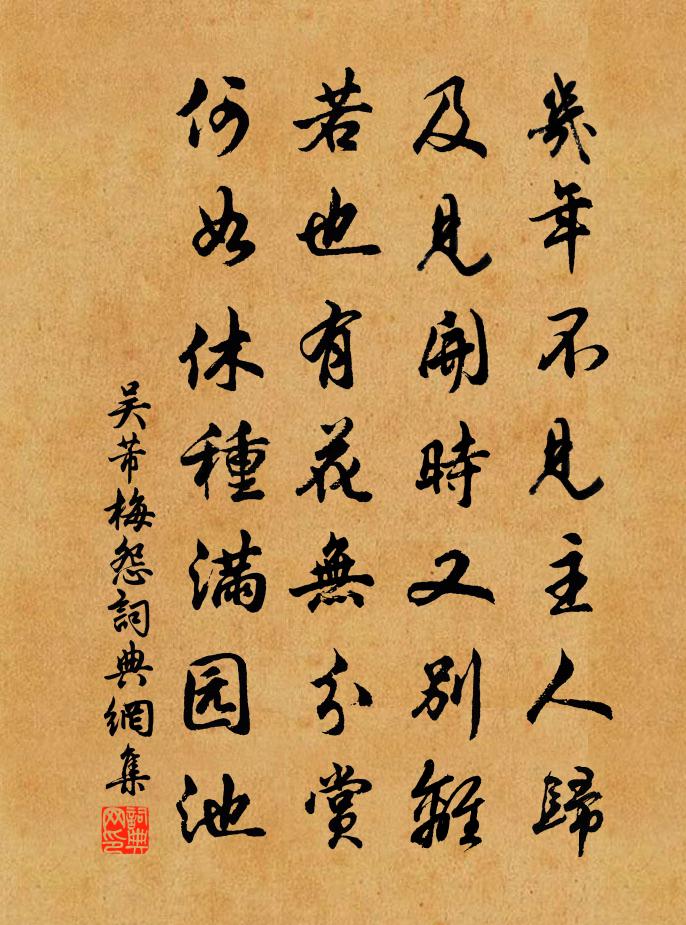 幾年不見主人歸
及見開時又別離
若也有花無分賞
何如休種滿园池
吴芾梅怨詞典網集
詞典网印